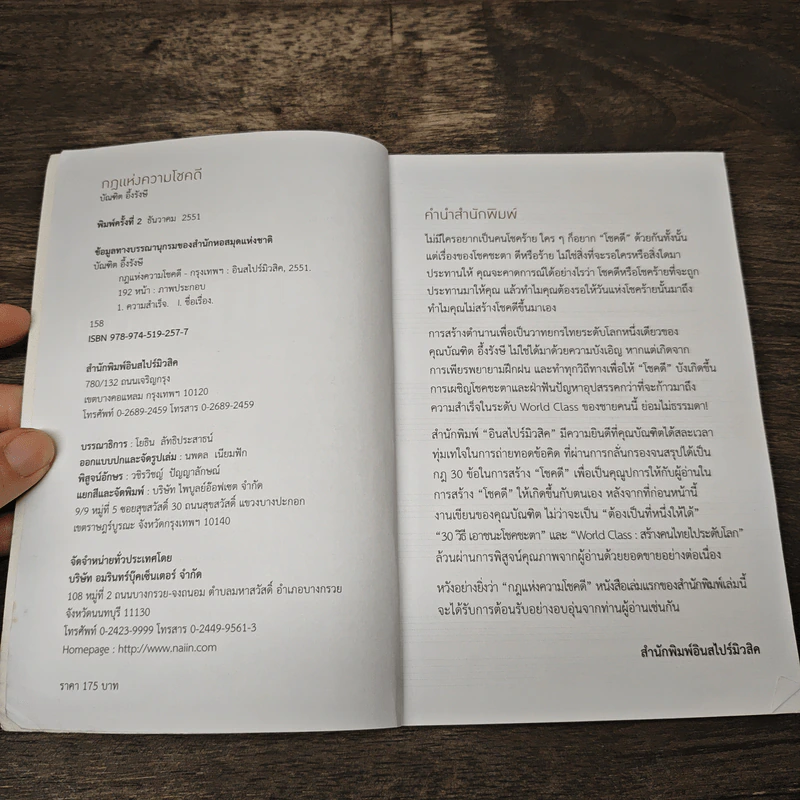 กฎแห่งความโชคดี
บัณฑิต อึ้งรังษี
พิมพ์ครั้งที่ 2 ธันวาคม 2551
ข้อมูลทางบรรณานุกรมของสำนักหอสมุดแห่งชาติ
บัณฑิต อึ้งรังษี
กฎแห่งความโชคดี - กรุงเทพฯ : อินสไปร์มิวสิค, 2551.
192 หน้า : ภาพประกอบ
1. ความสำเร็จ. I. ชื่อเรื่อง.
158
ISBN 978-974-519-257-7
สำนักพิมพ์อินสไปร์มิวสิค
780/132 ถนนเจริญกรุง
เขตบางคอแหลม กรุงเทพฯ 10120
โทรศัพท์ 0-2689-2459 โทรสาร 0-2689-2459
บรรณาธิการ : โยธิน ลัทธิประสาธน์
ออกแบบปกและจัดรูปเล่ม : นพดล เนียมฟัก
พิสูจน์อักษร : วชิรวิชญ์ ปัญญาลักษณ์
แยกสีและจัดพิมพ์ : บริษัท ไพบูลย์อ๊อฟเซต จำกัด
9/9 หมู่ที่ 5 ซอยสุขสวัสดิ์ 30 ถนนสุขสวัสดิ์ แขวงบางปะกอก
เขตราษฎร์บูรณะ จังหวัดกรุงเทพฯ 10140
จัดจำหน่ายทั่วประเทศโดย
บริษัท อมรินทร์บุ๊คเซ็นเตอร์ จำกัด
108 หมู่ที่ 2 ถนนบางกรวย-จงถนอม ตำบลมหาสวัสดิ์ อำเภอบางกรวย
จังหวัดนนทบุรี 11130
โทรศัพท์ 0-2423-9999 โทรสาร 0-2449-9561-3
Homepage : http://www.naiin.com
ราคา 175 บาท
คำนำสำนักพิมพ์
ไม่มีใครอยากเป็นคนโชคร้าย ใคร ๆ ก็อยาก “โชคดี” ด้วยกันทั้งนั้น
แต่เรื่องของโชคชะตา ดีหรือร้าย ไม่ใช่สิ่งที่จะรอใครหรือสิ่งใดมา
ประทานให้ คุณจะคาดการณ์ได้อย่างไรว่า โชคดีหรือโชคร้ายที่จะถูก
ประทานมาให้คุณ แล้วทำไมคุณต้องรอให้วันแห่งโชคร้ายนั้นมาถึง
ทำไมคุณไม่สร้างโชคดีขึ้นมาเอง
การสร้างตำนานเพื่อเป็นวาทยกรไทยระดับโลกหนึ่งเดียวของ
คุณบัณฑิต อึ้งรังษี ไม่ใช่ได้มาด้วยความบังเอิญ หากแต่เกิดจาก
การเพียรพยายามฝึกฝน และทำทุกวิถีทางเพื่อให้ “โชคดี” บังเกิดขึ้น
การเผชิญโชคชะตาและฝ่าฟันปัญหาอุปสรรคกว่าที่จะก้าวมาถึง
ความสำเร็จในระดับ World Class ของชายคนนี้ ย่อมไม่ธรรมดา!
สำนักพิมพ์ “อินสไปร์มิวสิค” มีความยินดีที่คุณบัณฑิตได้สละเวลา
ทุ่มเทใจในการถ่ายทอดข้อคิด ที่ผ่านการกลั่นกรองจนสรุปได้เป็น
กฎ 30 ข้อในการสร้าง “โชคดี” เพื่อเป็นคุณูปการให้กับผู้อ่านใน
การสร้าง “โชคดี” ให้เกิดขึ้นกับตนเอง หลังจากที่ก่อนหน้านี้
งานเขียนของคุณบัณฑิต ไม่ว่าจะเป็น “ต้องเป็นที่หนึ่งให้ได้”
“30 วิธี เอาชนะโชคชะตา” และ “World Class : สร้างคนไทยไประดับโลก”
ล้วนผ่านการพิสูจน์คุณภาพจากผู้อ่านด้วยยอดขายอย่างต่อเนื่อง
หวังอย่างยิ่งว่า “กฎแห่งความโชคดี” หนังสือเล่มแรกของสำนักพิมพ์เล่มนี้
จะได้รับการต้อนรับอย่างอบอุ่นจากท่านผู้อ่านเช่นกัน
สำนักพิมพ์อินสไปร์มิวสิค